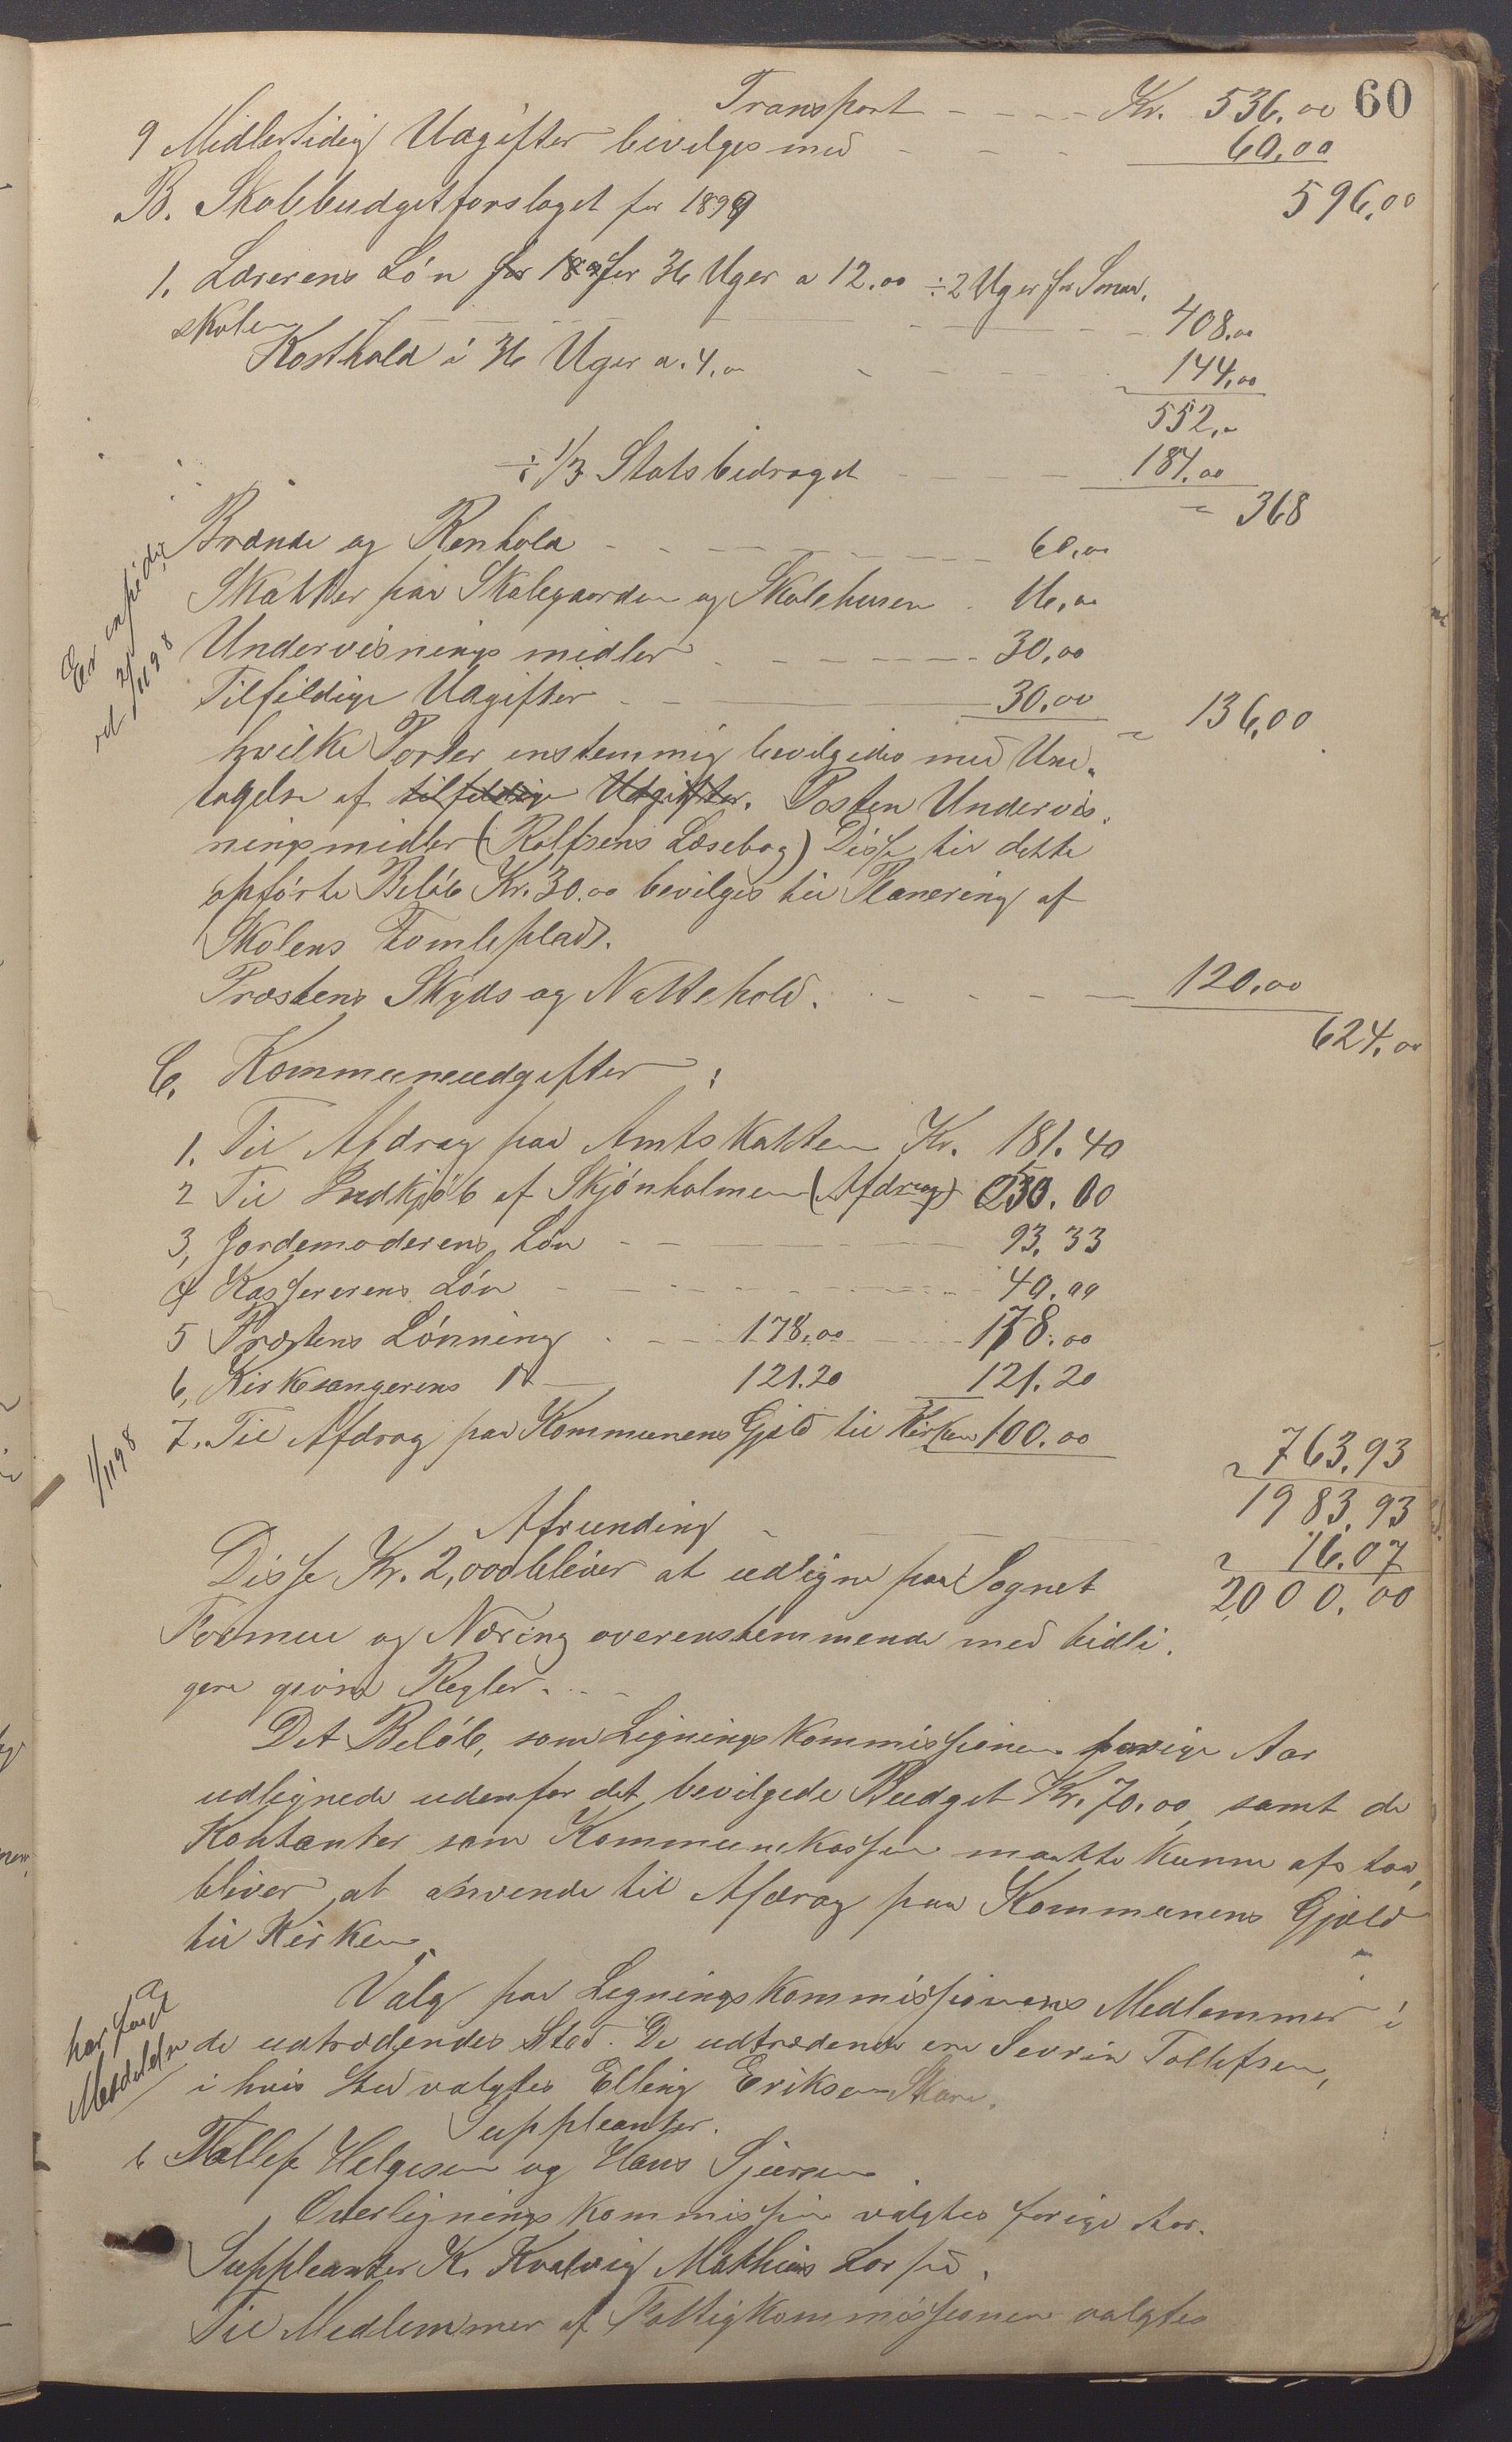 60
Transport - - - - Kr. 536,00
9 Midlertidig Udgifter bevilges med - - - 60,00
596,00
B. Skolebudgetforslaget for 1899
1. Lærerens Løn for 189 for 36 Uger a 12.00 ÷ 2 Uger for Smaa-
skolen - - - 408.00
Kosthold i 36 Uger a. 4,00 - - - 144,00
552,00
÷ 1/3 Statsbidraget - - - 184,00
" 368
Brænde og Renhold - - - 60,00
Skatter paa Skolegaarden og Skolehusen - 16,00
Undervisningsmidler - - - 30,00
Tilfeldige Udgifter - - - 30,00
" 136,00
Er expedir
ved 2/11 98
hvilke Poster enstemmig bevilgedes med Und-
tagelse af tilfeldige Udgifter. Posten Undervis-
ningsmidler (Rolfsens Læsebog) Disse til dette
opførte Beløb Kr. 30.00 bevilges til Planering af
Skolens Tomteplads.
Præstens Skyds og Nattehold. - - - 120,00
624,00
C. Kommuneudgifter:
1. Til Afdrag paa Amtskatten Kr. 181.40
2 Til Indkjøb af Skjønholmen (Afdrag) 50.00
3, Jordemoderens Løn - - - 93.33
4 Kassererens Løn - - - 40.00
5 Præstens Lønning - - - 178,00 178.00
6, Kirkesangerens D — 121.20 121.20
7. Til Afdrag paa Kommunens Gjeld til Kirken 100.00
1/11 98
" 763,93
1983,93
Afrunding - - - " 16.07
2000,00
Disse Kr. 2,000 bliver at udligne paa Sognet
Formue og Næring overensstemmende med tidli-
gere givne Regler. - -
Det Beløb, som Ligningskommissionen forrige Aar
udlignede udenfor det bevilgede Budget Kr. 70.00, samt de
Kontanter som Kommunekassen maatte kunne afstaa,
bliver at anvende til Afdrag paa Kommunens Gjæld
til Kirken.
Valg paa Ligningskommissionens Medlemmer i
de udtrædendes Sted. De udtrædende ere Sevrin Tollefsen,
i hvis Sted valgtes Elling Eriksen Skare.
har faaet
Meddelelse
Suppleanter.
Tollef Helgesen og Hans Sjursen.
Overligningskommission valgtes forige Aar.
Suppleanter K. Kvalvig Mathias
Til Medlemmer af Fattigkommissionen valgtes